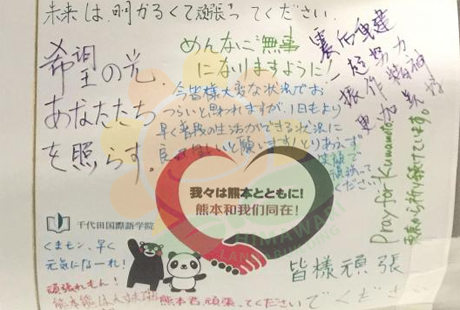 未来は、明かるくて頑張ってください.
希望の光
あなたたち
を照らす。
めんなに無事
になりますように！
今皆様大変な状況でお
つらいと思われますが、1日もより
早く普段の生活ができる状況に
災后重建
一起努力
振作精神
更加美好
Pray for Kumamoto
東京から祈り続けています。
我々は熊本とともに!
熊本和我们同在!
HIMAWARI
千代田国際語学院
くまモン、早く
元気になーれ！
皆様頑張
でください
頑張れもん！